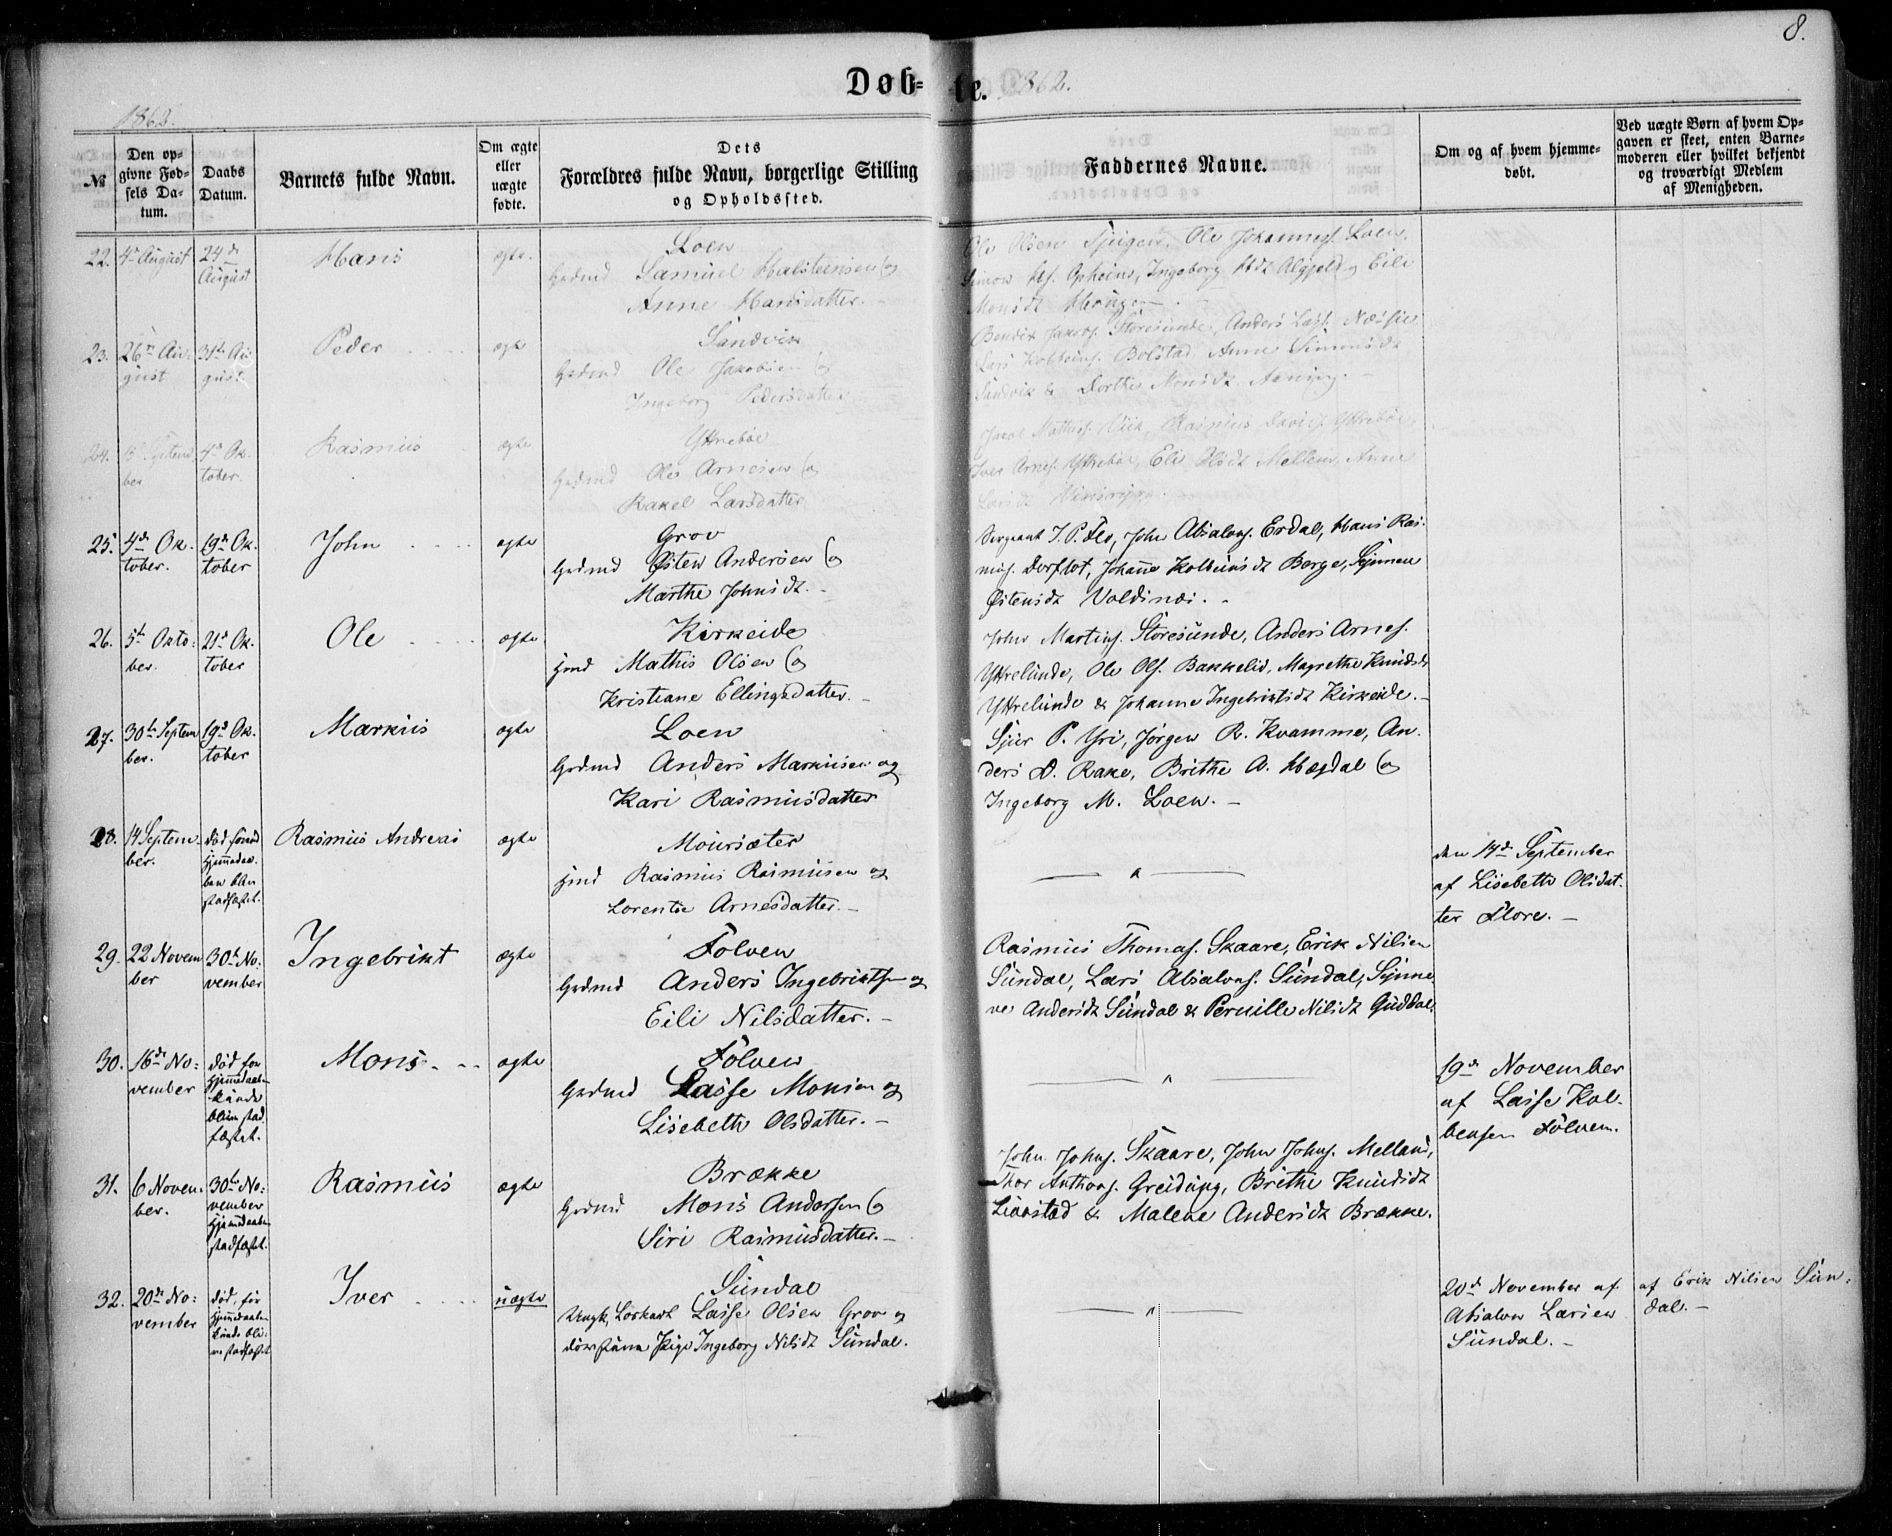 8.
Døb-
te.
1862.
1862.
№
Den op-
givne Fød-
sels Da-
tum.
Daabs
Datum.
Barnets fulde Navn.
Om ægte
eller
uægte
fødte.
Dets
Forældres fulde Navn, borgerlige Stilling
og Opholdssted.
Faddernes Navne.
Om og af hvem hjemme-
døbt.
Ved uægte Børn af hvem Op-
gaven er skeet, enten Barne-
moderen eller hvilket bekjendt
og troværdigt Medlem
af Menigheden.
22. 4de August 24de
August
Hans
ægte.
Loen
Gbdmd Samuel Halsteensen og
Anne Hansdatter.
Ole Olsen Johannesf. Loen,
Simon Ingeborg Eili
Monsdt
23. 26de Au-
gust 31te Au-
gust
Peder
ægte
Sandvik
Gbdmd Ole Jakobsen og
Ingeborg Pedersdatter
Bendix Jakobs. Storesunde, Anders Lasf.
Lars Kolbeins. Bolstad, Anne Simonsdt
Sandvik & Dorthe Monsdt
24. Septem-
ber 4de Ok-
tober.
Rasmus
ægte
Yttrebøe
Gbdmd Ole Arnesen og
Rakel Larsdatter
Jacob Mathisf. Rasmus Davidf. Yttrebøe,
Iver Arnesf. Yttrebøe, Eli Olsdt Anne
Larsdt
25. 4de Ok-
tober. 19de Ok-
tober
John
ægte
Grov
Gbdmd Østen Andersen og
Marthe Johnsdt.
Sergeant I. P. Flo, John Absalonf. Erdal, Hans Ras-
musf. Johanne Kolbeinsdt Berge, Synneu
Østensdt Voldsnæs.
26. 5te Okto-
ber. 21de Ok-
tober
Ole
ægte
Kirkeide
Hmd Mathis Olsen og
Kristiane Ellingsdatter.
John Martinf. Storesunde, Anders Arnef.
Yttrelunde, Ole Olf. Bakkelid, Magrethe Knudsdt
Yttrelunde & Johanne Ingebriktsdt Kirkeide.
27. 30te Septem-
ber. 19de Ok-
tober
Markus
ægte
Loen
Gbdmd Anders Markusen og
Kari Rasmusdatter
Sjur P. Yri, Jørgen R. Kvamme, An-
ders D. Rake, Brithe A. Hægdal og
Ingeborg M. Loen.
28. 14 Septem-
ber. død førend
Hjemmedaa-
ben blev
stadfæstet.
Rasmus Andreas
ægte
Moursæter
Hmd Rasmus Rasmusen og
Lorentse Arnesdatter.
— " —
den 14de September
af Lisebeth Olsdat-
ter Flore.
29. 22 Novem-
ber 30te No-
vember
Ingebrikt
ægte
Følven
Gbdmd Anders Ingebriktsen og
Eili Nilsdatter.
Rasmus Thomasf. Skaare, Erik Nilsen
Sundal, Lars Absalonf. Sundal, Synne-
ve Andersdt Sundal & Pernille Nilsdt Guddal.
30. 16de No-
vember død før
Hjemmedaaben
kunde
blive stad-
fæstet.
Mons
ægte
Følven
Gbdmd Lasse Monsen og
Lisebeth Olsdatter.
— " —
19de November
af Lasse Kol-
bensen Følven.
31. 6 Novem-
ber. 30te No-
vember
Hjemmedaaben
stadfæstet.
Rasmus
ægte
Brække
Gbdmd Mons Andersen og
Siri Rasmusdatter.
John Johnf. Skaare, John Johnf. Melland,
Thor Anthonf. Greidung, Brithe Knudsdt
& Malene Andersdt Brække.
32. 20de No-
vember død, før
Hjemmedaaben
kunde bli-
ve stadfæstet
Iver
uægte
Sundal
Ungk. Lasse Olsen Grov og
Pige Ingeborg Nilsdt Sundal.
— " —
20de November af
Absalon Larsen
Sundal.
af Erik Nilsen Sun-
dal.